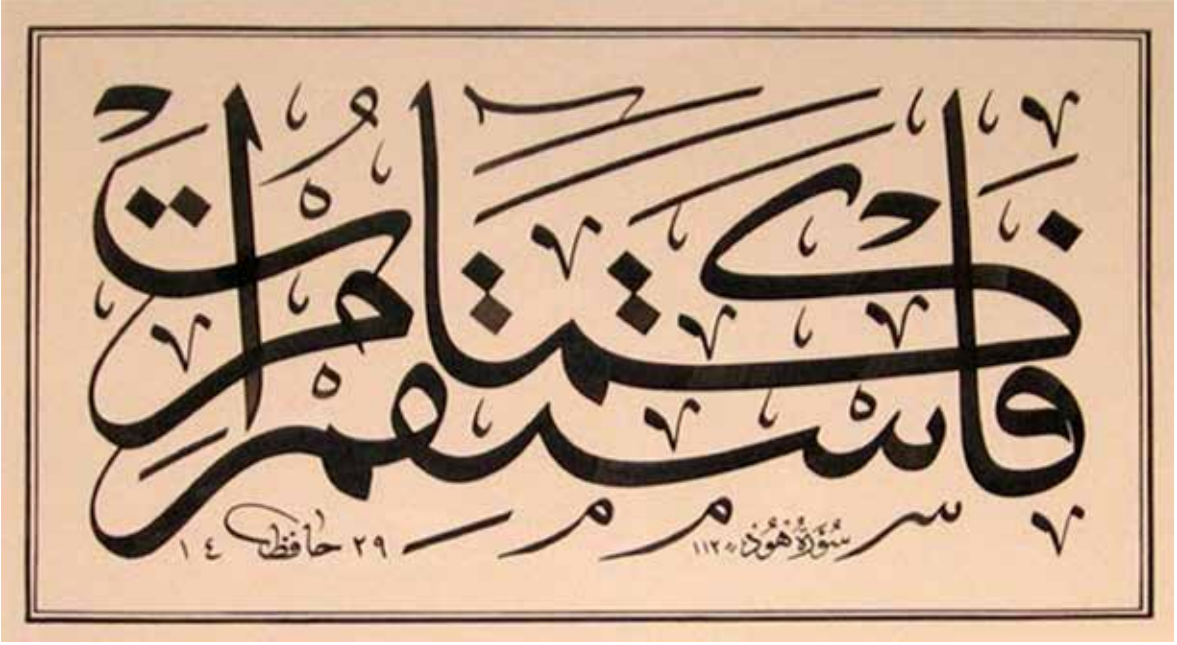 فَاسْتَقِمْ كَمَا أُمِرْتَ
سُورَةُ هُودٍ ١١٢
١٤ حافظ ٢٩